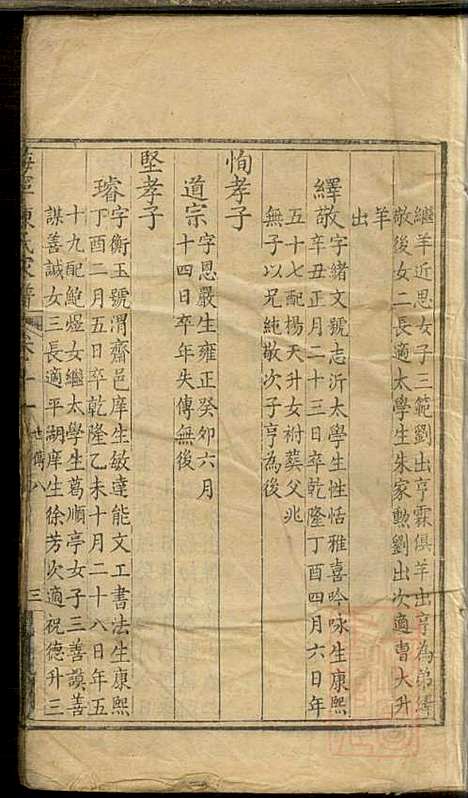 繼羊近思女子三範劉出亨霖俱羊出亨為弟繹
敬後女二長適太學生朱家勲劉出次適曹大升
羊
出
繹敬字緒文號志沂太學生性恬雅喜吟咏生康熙
辛丑正月二十三日卒乾隆丁酉四月六日年
五十七配楊天升女祔葬父兆
無子以兄純敬次子亨為後
恂孝子
道宗字恩嚴生雍正癸卯六月
十四日卒年失傳無後
堅孝子
璿字衡玉號渭齋邑庠生敏達能文工書法生康熙
丁酉二月五日卒乾隆乙未十月二十八日年五
十九配鮑煜女繼太學生葛順亭女子三善謨善
謀善誠女三長適平湖庠生徐芳次適祝德升三
陳氏家譜
卷十一
世傳八
三